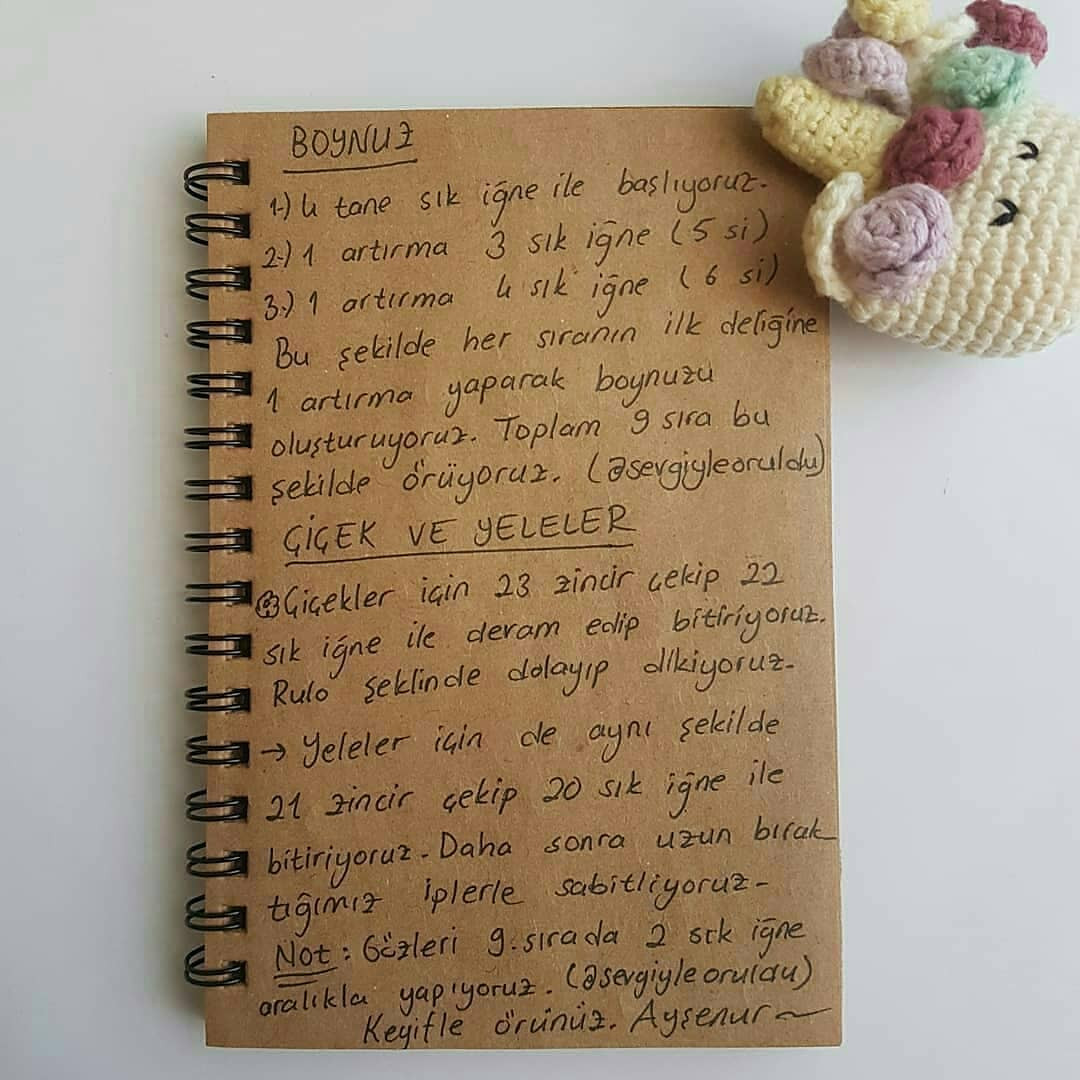 BOYNUZ
1-) 4 tane sık iğne ile başlıyoruz.
2-) 1 artırma 3 sık iğne (5 si)
3-) 1 artırma 4 sık iğne (6 si)
Bu şekilde her sıranın ilk deliğine
1 artırma yaparak boynuzu
oluşturuyoruz. Toplam 9 sıra bu
şekilde örüyoruz. (@sevgiyleoruldu)
ÇİÇEK VE YELELER
Çiçekler için 23 zincir çekip 22
sık iğne ile devam edip bitiriyoruz.
Rulo şeklinde dolayıp dikiyoruz-
→ Yeleler için de aynı şekilde
21 zincir çekip 20 sık iğne ile
bitiriyoruz. Daha sonra uzun bırak
tığımız iplerle sabitliyoruz-
Not: Gözleri 9. sırada 2 sık iğne
aralıkla yapıyoruz. (@sevgiyleoruldu)
Keyifle örünüz. Ayşenur~